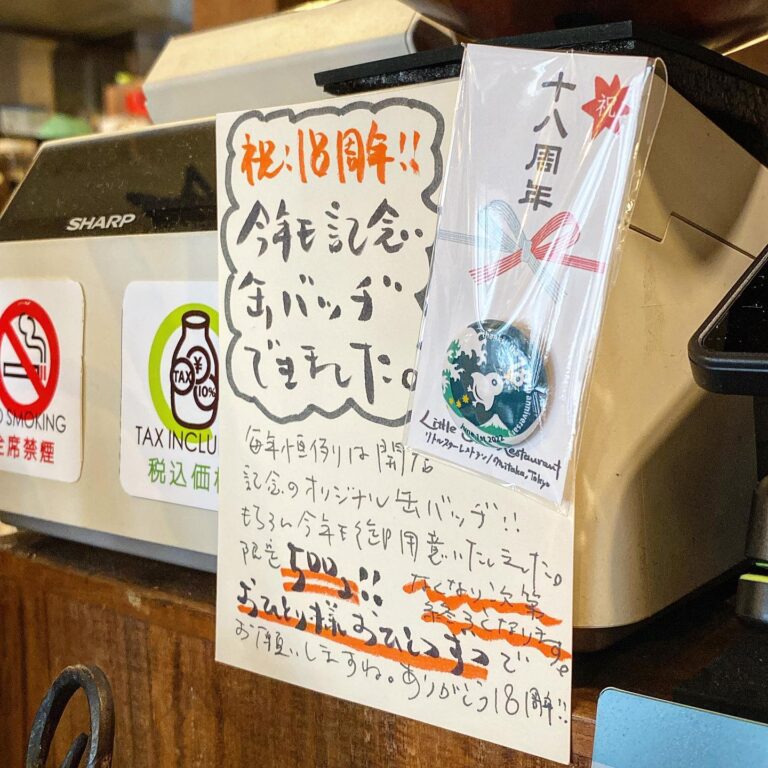 SHARP
NO SMOKING
全席禁煙
TAX
¥
10%
TAX INCLU
税込価格
祝:18周年!!
今年も記念
缶バッヂ
できました。
毎年恒例りは開店
記念のオリジナル缶バッヂ!!
もちろん今年も御用意いたしました。
限定500コ!!
なくなり次第
終了となります。
おひとり様おひとつまでで
お願いしますね。ありがとう18周年!!
祝
十八周年
anniversary
Little Restaurant
リトルスターレストラン/Mitaka, Tokyo